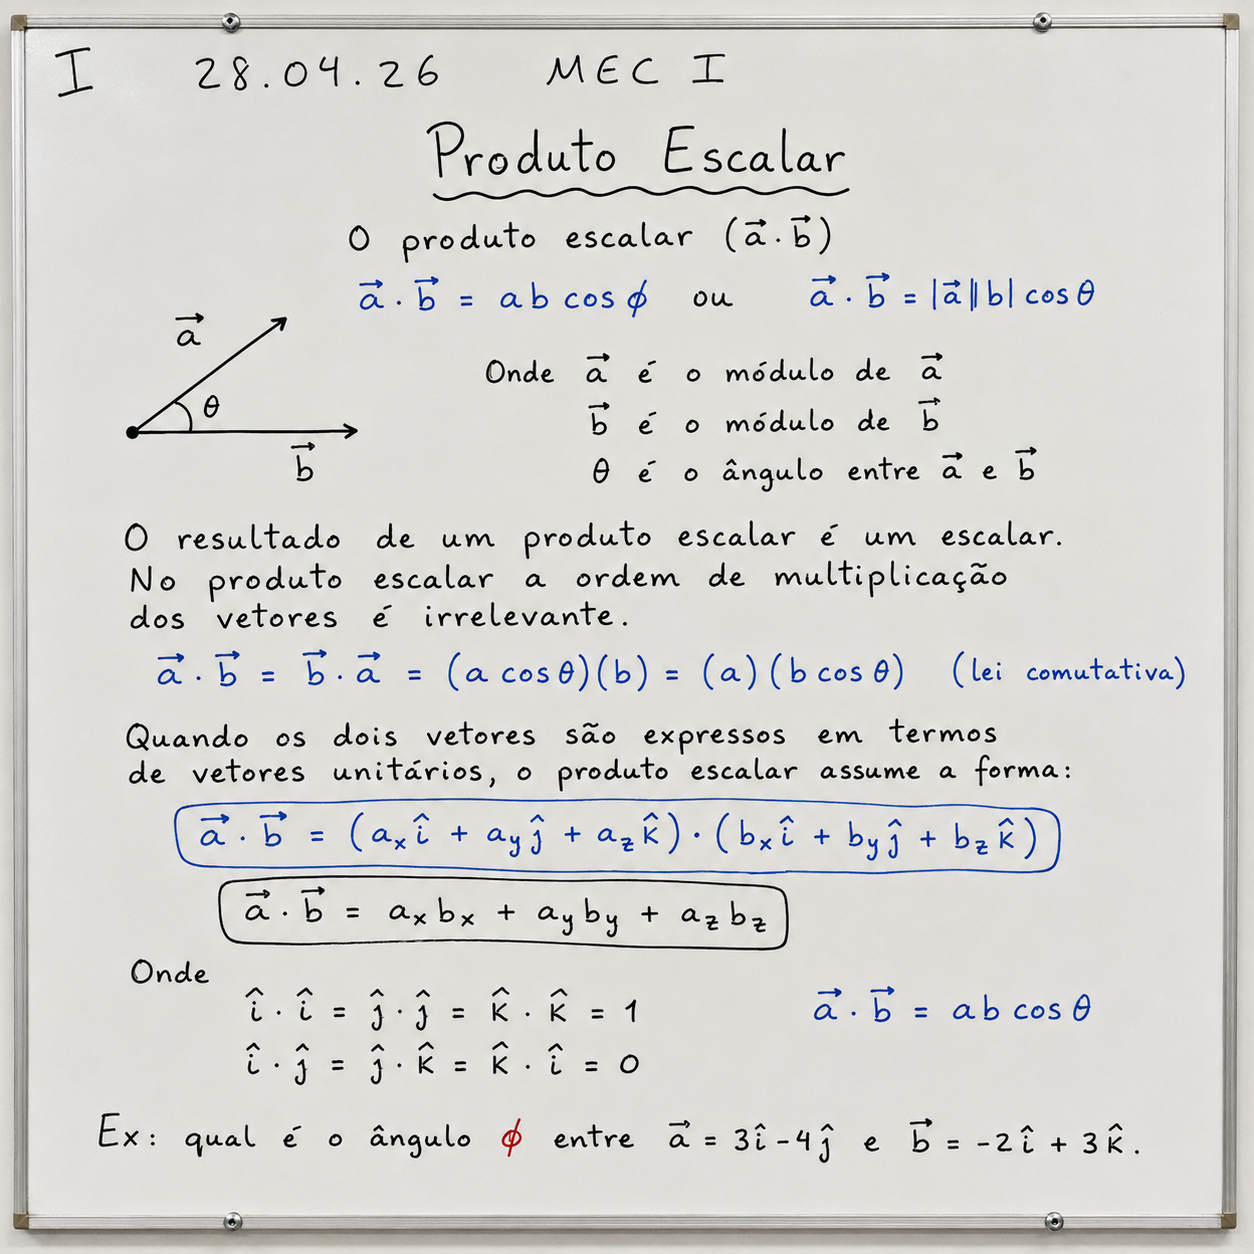 I 28.04.26 MEC I
Produto Escalar
O produto escalar (a⃗·b⃗)
a⃗·b⃗ = ab cos ϕ ou a⃗·b⃗ = |a⃗||b| cos θ
a⃗
θ
b⃗
Onde a⃗ é o módulo de a⃗
b⃗ é o módulo de b⃗
θ é o ângulo entre a⃗ e b⃗
O resultado de um produto escalar é um escalar.
No produto escalar a ordem de multiplicação
dos vetores é irrelevante.
a⃗·b⃗ = b⃗·a⃗ = (a cos θ)(b) = (a)(b cos θ) (lei comutativa)
Quando os dois vetores são expressos em termos
de vetores unitários, o produto escalar assume a forma:
a⃗·b⃗ = (aₓî + a_yĵ + a_zk̂)·(bₓî + b_yĵ + b_zk̂)
a⃗·b⃗ = aₓbₓ + a_yb_y + a_zb_z
Onde
î·î = ĵ·ĵ = k̂·k̂ = 1 a⃗·b⃗ = ab cos θ
î·ĵ = ĵ·k̂ = k̂·î = 0
Ex: qual é o ângulo ϕ entre a⃗ = 3î-4ĵ e b⃗ = -2î + 3k̂.